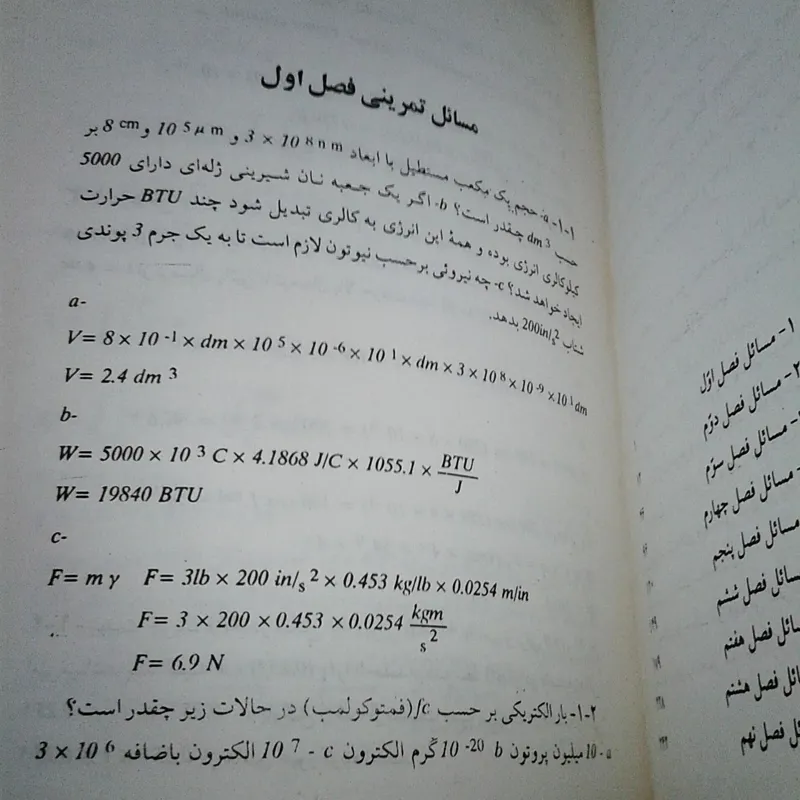 مسائل تمرینی فصل اول
۱-۱- a- حجم یک مکعب مستطیل با ابعاد 3 × 10 8 nm و 10 5 μm و 8 cm بر
حسب dm 3 چقدر است؟ b- اگر یک جعبه نان شیرینی ژله‌ای دارای 5000
کیلوکالری انرژی بوده و همهٔ این انرژی به کالری تبدیل شود چند BTU حرارت
ایجاد خواهد شد؟ c- چه نیروئی برحسب نیوتون لازم است تا به یک جرم 3 پوندی
شتاب 200in/s2 بدهد.
a-
V= 8 × 10 -1 × dm × 10 5 × 10 -6 × 10 1 × dm × 3 × 10 8 × 10 -9 × 10 1 dm
V= 2.4 dm 3
b-
W= 5000 × 10 3 C × 4.1868 J/C × 1055.1 × BTU/J
W= 19840 BTU
c-
F= m γ F= 3lb × 200 in/s 2 × 0.453 kg/lb × 0.0254 m/in
F= 3 × 200 × 0.453 × 0.0254 kgm/s 2
F= 6.9 N
۲-۱- بار الکتریکی بر حسب fc (فمتوکولمب) در حالات زیر چقدر است؟
a - 10 میلیون پروتون b 10 -20 گرم الکترون c - 10 7 الکترون باضافه 3 × 10 6
۱- مسائل فصل اوّل
۲- مسائل فصل دوّم
- مسائل فصل سوّم
- مسائل فصل چهارم
مسائل فصل پنجم
مسائل فصل ششم
مسائل فصل هفتم
مسائل فصل هشتم
فصل نهم